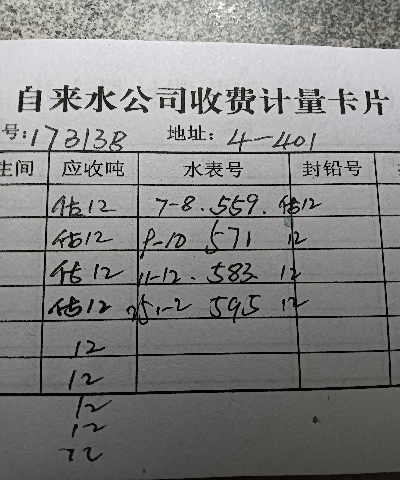 自来水公司收费计量卡片
号:173138 地址: 4-401
生间 应收吨 水表号 封铅号
估12 7-8. 559. 估12
估12 9-10 571 12
估12 11-12. 583 12
估12 25 1-2 595 12
12
12
12
12